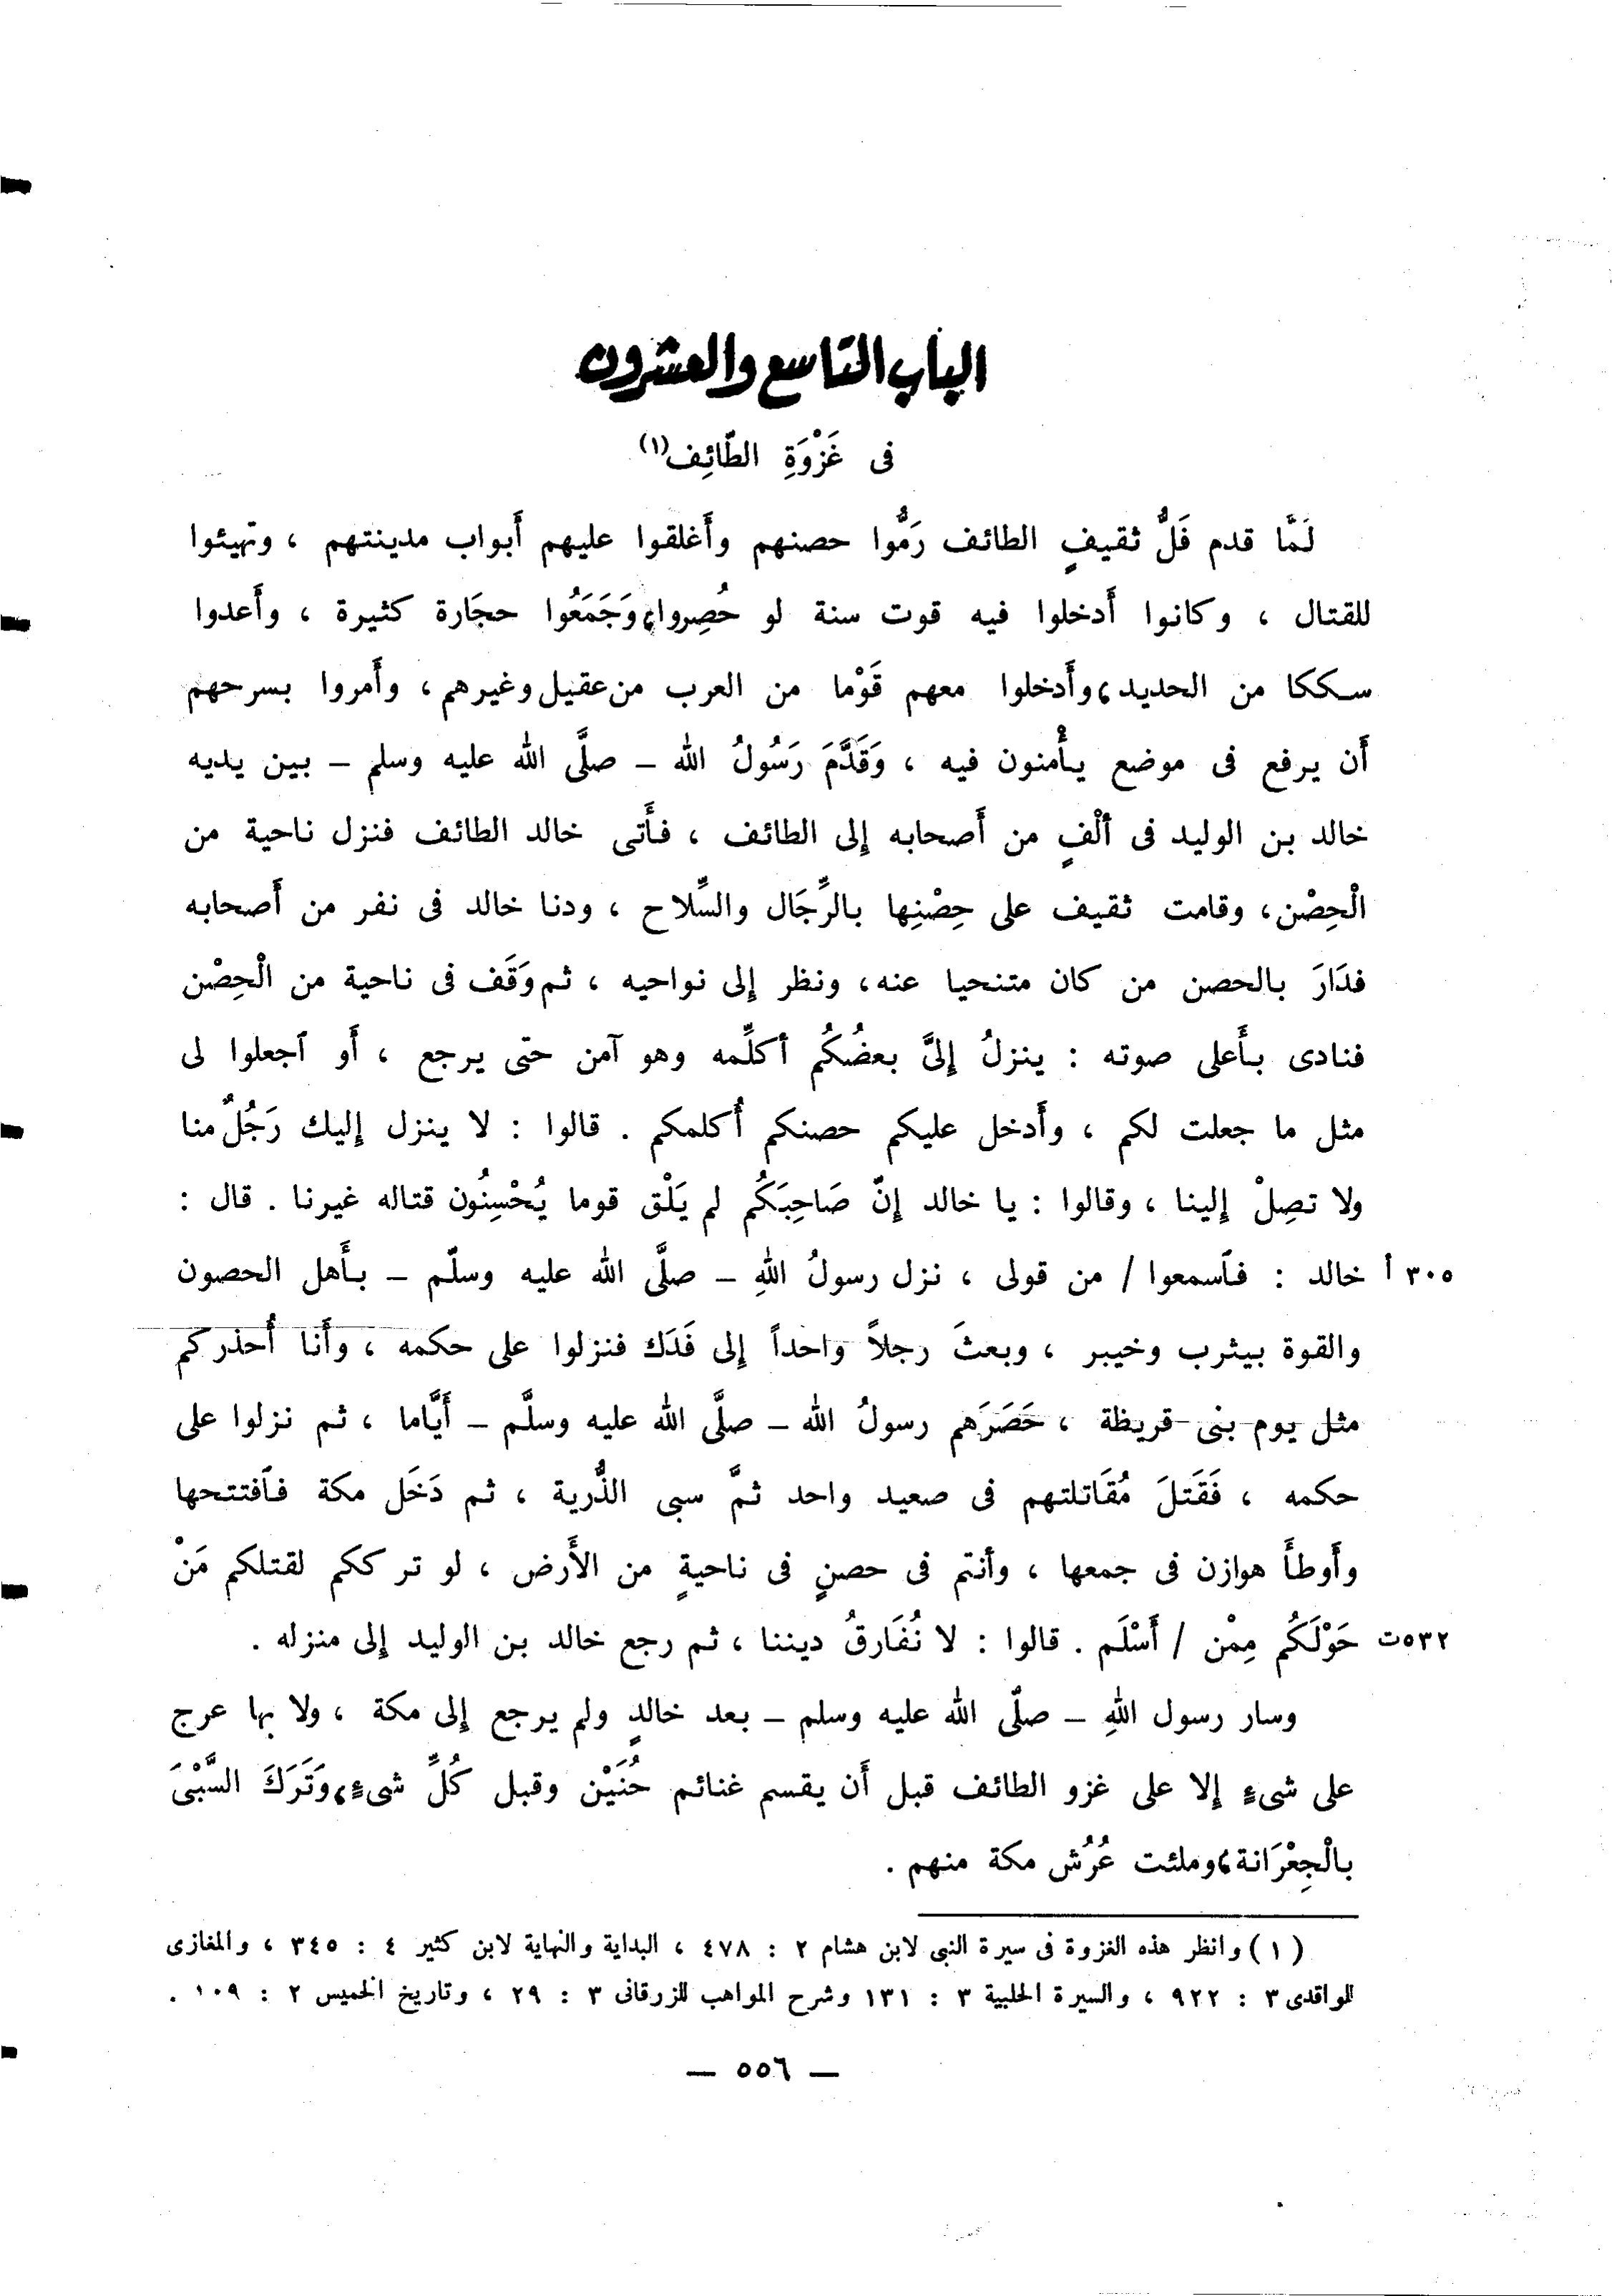 الباب التاسع والعشرون
فى غَزْوَةِ الطَّائِف(١)
لَمَّا قدم فَلُّ ثقيفٍ الطائف رَمُّوا حصنهم وأَغلقوا عليهم أَبواب مدينتهم ، وتهيئوا
للقتال ، وكانوا أَدخلوا فيه قوت سنة لو حُصِروا، وَجَمَعُوا حجَارة كثيرة ، وأَعدوا
سككا من الحديد، وأَدخلوا معهم قَوْما من العرب من عقيل وغيرهم ، وأَمروا بسرحهم
أَن يرفع فى موضع يأْمنون فيه ، وَقَدَّمَ رَسُولُ الله – صلَّى الله عليه وسلم – بين يديه
خالد بن الوليد فى ألْفٍ من أَصحابه إِلى الطائف ، فأَتى خالد الطائف فنزل ناحية من
الْحِصْن ، وقامت ثقيف على حِصْنِها بالرِّجَال والسِّلاح ، ودنا خالد فى نفر من أَصحابه
فدَارَ بالحصن من كان متنحيا عنه ، ونظر إِلى نواحيه ، ثم وَقَف فى ناحية من الْحِصْن
فنادى بأَعلى صوته : ينزلُ إِلىَّ بعضُكُم أكلِّمه وهو آمن حتى يرجع ، أَو اَجعلوا لى
مثل ما جعلت لكم ، وأَدخل عليكم حصنكم أُكلمكم . قالوا : لا ينزل إِليك رَجُلٌ منا
ولا تصِلْ إِلينا ، وقالوا : يا خالد إِنّ صَاحِبَكُم لم يَلْق قوما يُحْسِنُون قتاله غيرنا . قال :
٣٠٥ أ خالد : فاَسمعوا / من قولى ، نزل رسولُ اللهِ – صلَّى الله عليه وسلّم – بأَهل الحصون
والقوة بيثرب وخيبر ، وبعثَ رجلاً واحداً إِلى فَدَك فنزلوا على حكمه ، وأَنا أُحذركم
مثل يوم بنى قريظة ، حَصَرَهم رسولُ الله – صلَّى الله عليه وسلَّم – أَيَّاما ، ثم نزلوا على
حكمه ، فَقَتلَ مُقَاتلتهم فى صعيد واحد ثمَّ سبى الذُّرية ، ثم دَخَل مكة فاَفتتحها
وأَوطأَ هوازن فى جمعها ، وأنتم فى حصنٍ فى ناحيةٍ من الأَرض ، لو تركـكم لقتلكم مَنْ
٥٣٢ت حَوْلَكُم مِمْن / أَسْلَم . قالوا : لا نُفَارقُ ديننا ، ثم رجع خالد بن الوليد إِلى منزله .
وسار رسول اللهِ – صلّى الله عليه وسلم – بعد خالدٍ ولم يرجع إِلى مكة ، ولا بها عرج
على شىءٍ إِلا على غزو الطائف قبل أَن يقسم غنائم حُنَيْن وقبل كُلِّ شىءٍ، وَتَرَكَ السَّبْىَ
بالْجِعْرَانة، وملئت عُرُش مكة منهم .
(١) وانظر هذه الغزوة فى سيرة النبى لابن هشام ٢ : ٤٧٨ ، البداية والنهاية لابن كثير ٤ : ٣٤٥ ، والمغازى
للواقدى ٣ : ٩٢٢ ، والسيرة الحلبية ٣ : ١٣١ وشرح المواهب للزرقانى ٣ : ٢٩ ، وتاريخ الخميس ٢ : ١٠٩ .
— ٥٥٦ —